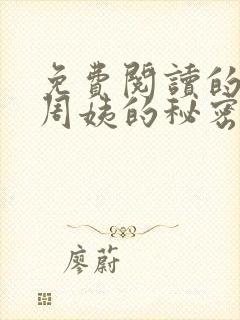 免費閱讀的
周姨的秘密
廖蔚